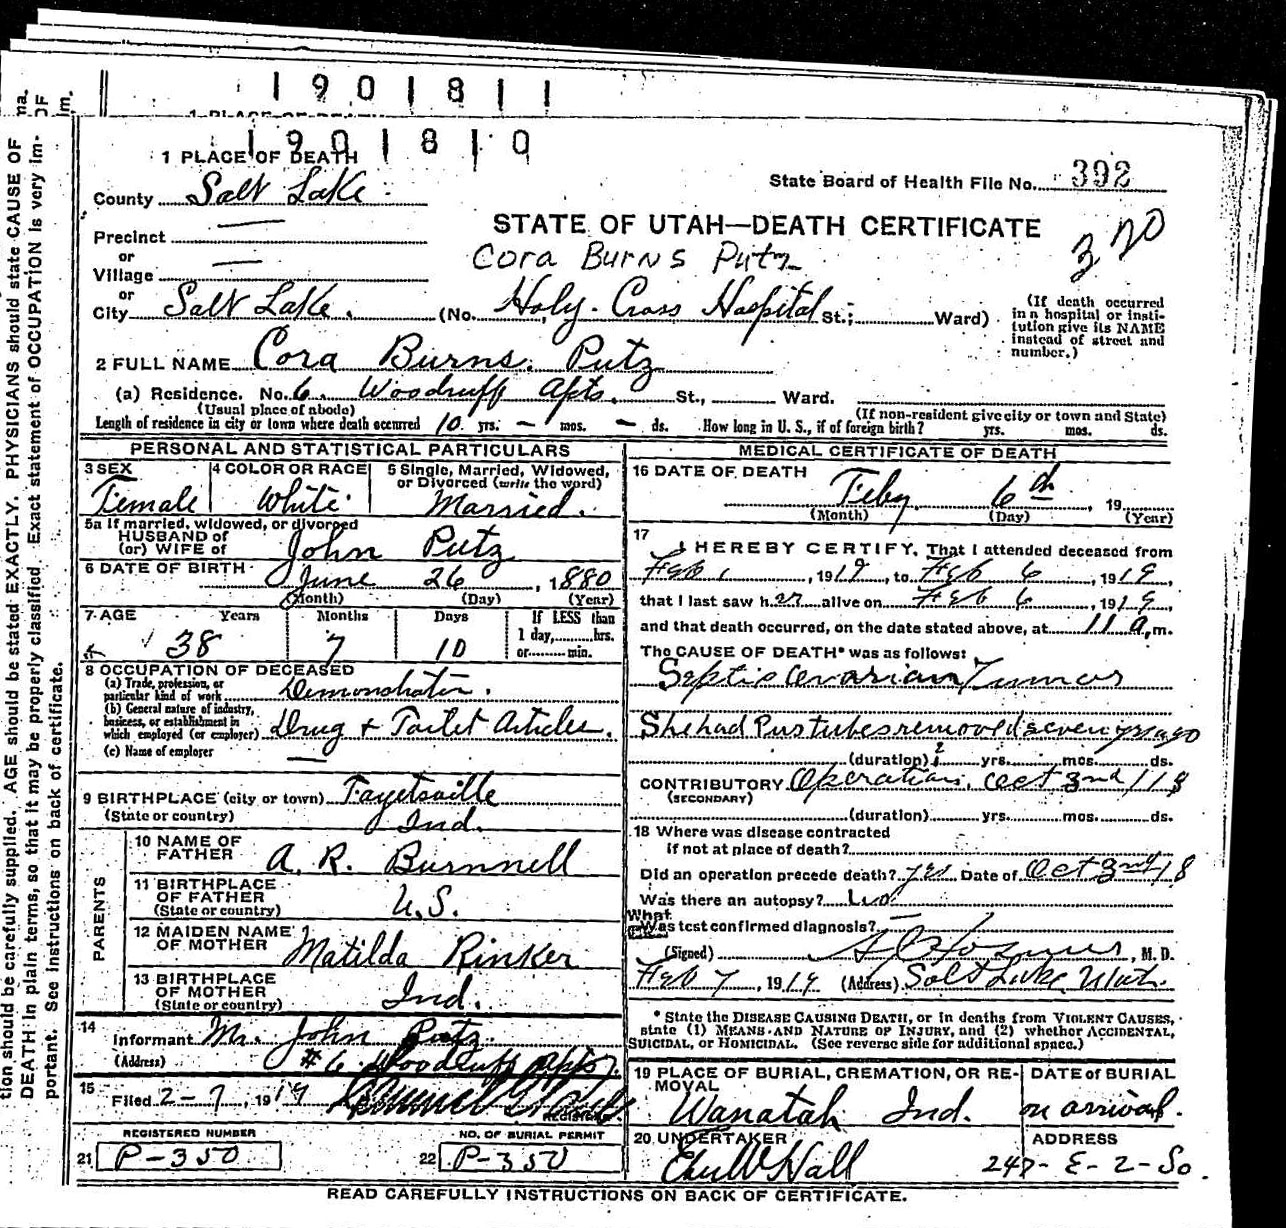 1901811
1901810
1 PLACE OF DEATH
State Board of Health File No. 392
County Salt Lake
STATE OF UTAH—DEATH CERTIFICATE
320
Precinct —
Cora Burns Putz
or
Village —
or
City Salt Lake. (No. Holy Cross Hospital St.; Ward)
(If death occurred in a hospital or institution give its NAME instead of street and number.)
2 FULL NAME Cora Burns Putz
(a) Residence. No. 6. Woodruff Apts. St., Ward.
(Usual place of abode) (If non-resident give city or town and State)
Length of residence in city or town where death occurred 10 yrs. — mos. — ds. How long in U. S., if of foreign birth? yrs. mos. ds.
PERSONAL AND STATISTICAL PARTICULARS
3 SEX Female
4 COLOR OR RACE White
5 Single, Married, Widowed, or Divorced (write the word) Married.
5a If married, widowed, or divorced
HUSBAND of
(or) WIFE of John Putz
6 DATE OF BIRTH June 26, 1880
(Month) (Day) (Year)
7 AGE Years Months Days If LESS than
38 7 10 1 day, hrs.
or min.
8 OCCUPATION OF DECEASED
(a) Trade, profession, or particular kind of work Demonstrator.
(b) General nature of industry, business, or establishment in which employed (or employer) Drug + Toilet Articles.
(c) Name of employer —
9 BIRTHPLACE (city or town) Fayetsville
(State or country) Ind.
PARENTS
10 NAME OF FATHER A. R. Burnnell
11 BIRTHPLACE OF FATHER (State or country) U.S.
12 MAIDEN NAME OF MOTHER Matilda Rinker
13 BIRTHPLACE OF MOTHER (State or country) Ind.
14
Informant Mr. John Putz
(Address) #6 Woodruff Apts.
15
Filed 2-7, 1919
REGISTRAR
REGISTERED NUMBER
21 P-350
NO. OF BURIAL PERMIT
22 P-350
MEDICAL CERTIFICATE OF DEATH
16 DATE OF DEATH Feby 6th, 19
(Month) (Day) (Year)
17
I HEREBY CERTIFY, That I attended deceased from
Feb 1, 1919, to Feb 6, 1919,
that I last saw her alive on Feb 6, 1919,
and that death occurred, on the date stated above, at 11 a.m.
The CAUSE OF DEATH* was as follows:
Septic Ovarian Tumor
She had Pus tubes removed seven yrs ago
(duration) yrs. mos. ds.
CONTRIBUTORY Operation, Oct 2nd/18
(SECONDARY)
(duration) yrs. mos. ds.
18 Where was disease contracted
if not at place of death?
Did an operation precede death? yes Date of Oct 2nd/18
Was there an autopsy? No
What test confirmed diagnosis? —
(Signed) M. D.
Feb 7, 1919 (Address) Salt Lake, Utah.
* State the DISEASE CAUSING DEATH, or in deaths from VIOLENT CAUSES,
state (1) MEANS AND NATURE OF INJURY, and (2) whether ACCIDENTAL,
SUICIDAL, or HOMICIDAL. (See reverse side for additional space.)
19 PLACE OF BURIAL, CREMATION, OR REMOVAL
Wanatah Ind.
DATE of BURIAL
on arrival.
20 UNDERTAKER
Eber W Hall
ADDRESS
247-E-2-So.
READ CAREFULLY INSTRUCTIONS ON BACK OF CERTIFICATE.
tion should be carefully supplied. AGE should be stated EXACTLY. PHYSICIANS should state CAUSE OF
DEATH in plain terms, so that it may be properly classified. Exact statement of OCCUPATION is very im-
portant. See instructions on back of certificate.